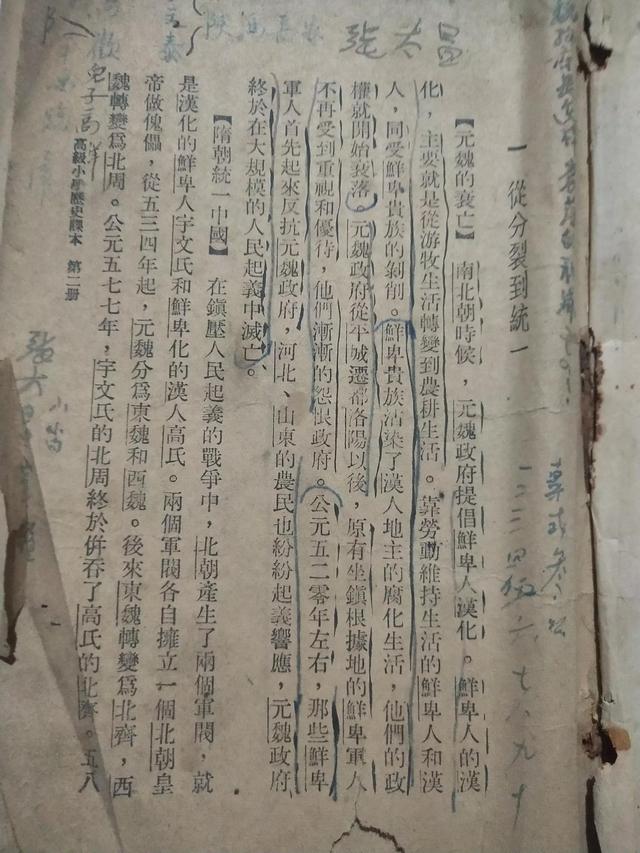 一 從分裂到統一
【元魏的衰亡】 南北朝時候，元魏政府提倡鮮卑人漢化。鮮卑人的漢
化，主要就是從游牧生活轉變到農耕生活。靠勞動維持生活的鮮卑人和漢
人，同受鮮卑貴族的剝削。鮮卑貴族沾染了漢人地主的腐化生活，他們的政
權就開始衰落。元魏政府從平城遷都洛陽以後，原有坐鎮根據地的鮮卑軍人
不再受到重視和優待，他們漸漸的怨恨政府。公元五二零年左右，那些鮮卑
軍人首先起來反抗元魏政府，河北、山東的農民也紛紛起義響應，元魏政府
終於在大規模的人民起義中滅亡。
【隋朝統一中國】 在鎮壓人民起義的戰爭中，北朝產生了兩個軍閥，就
是漢化的鮮卑人宇文氏和鮮卑化的漢人高氏。兩個軍閥各自擁立一個北朝皇
帝做傀儡，從五三四年起，元魏分爲東魏和西魏。後來東魏轉變爲北齊，西
魏轉變爲北周。公元五七七年，宇文氏的北周終於併吞了高氏的北齊。五八
高級小學歷史課本 第二册
一二三四伍六七八九十